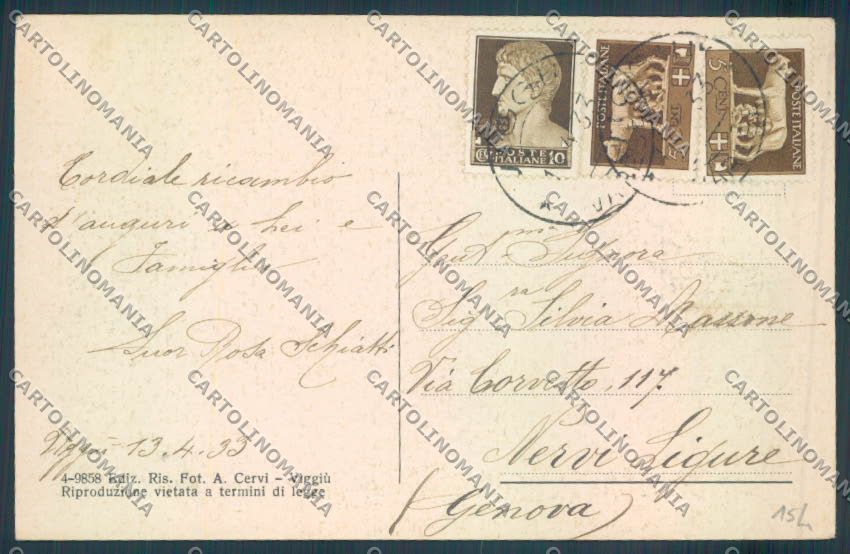 Cordiale ricambio
d'auguri a Lei e
Famiglia
Suor Rosa Schiatti
Viggiù 13.4.33
4-9858 Ediz. Ris. Fot. A. Cervi - Viggiù
Riproduzione vietata a termini di legge
POSTE
ITALIANE
10
POSTE ITALIANE
5
CENT.
POSTE ITALIANE
Gent.ma Signora
Sig.ra Silvia Massone
Via Corvetto, 117
Nervi Ligure
(Genova)
15/
CARTOLINOMANIA